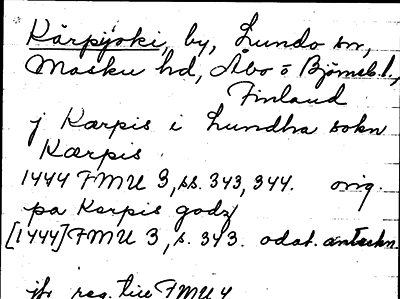 Kärpijoki, by, Lundo sn,
Masku hd, Åbo o Björneb. l.,
Finland
j Kærpis i Lundha sokn
Kærpis
1444 FMU 3, ss. 343, 344. orig.
pa Kerpis godz
[1444] FMU 3, s. 343. odat. anteckn.
jfr reg. till FMU 4